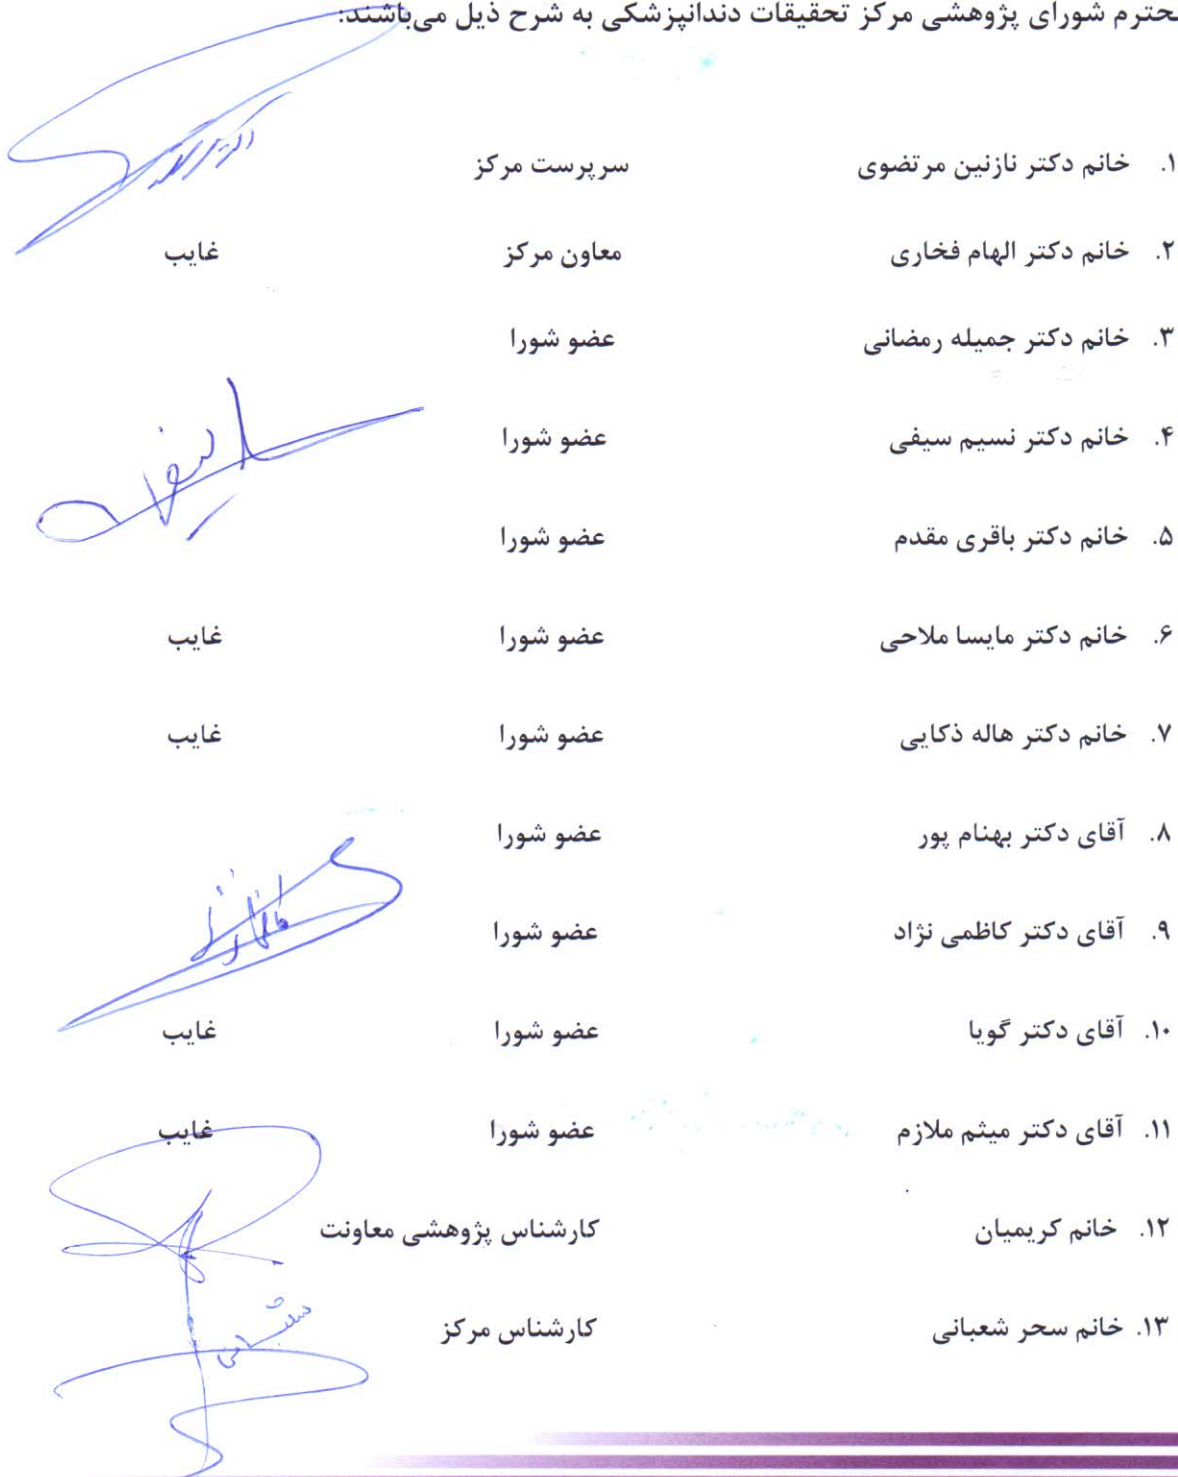 حترم شورای پژوهشی مرکز تحقیقات دندانپزشکی به شرح ذیل می‌باشند:
۱. خانم دکتر نازنین مرتضوی سرپرست مرکز
۲. خانم دکتر الهام فخاری معاون مرکز غایب
۳. خانم دکتر جمیله رمضانی عضو شورا
۴. خانم دکتر نسیم سیفی عضو شورا
۵. خانم دکتر باقری مقدم عضو شورا
۶. خانم دکتر مایسا ملاحی عضو شورا غایب
۷. خانم دکتر هاله ذکایی عضو شورا غایب
۸. آقای دکتر بهنام پور عضو شورا
۹. آقای دکتر کاظمی نژاد عضو شورا
۱۰. آقای دکتر گویا عضو شورا غایب
۱۱. آقای دکتر میثم ملازم عضو شورا غایب
۱۲. خانم کریمیان کارشناس پژوهشی معاونت
۱۳. خانم سحر شعبانی کارشناس مرکز